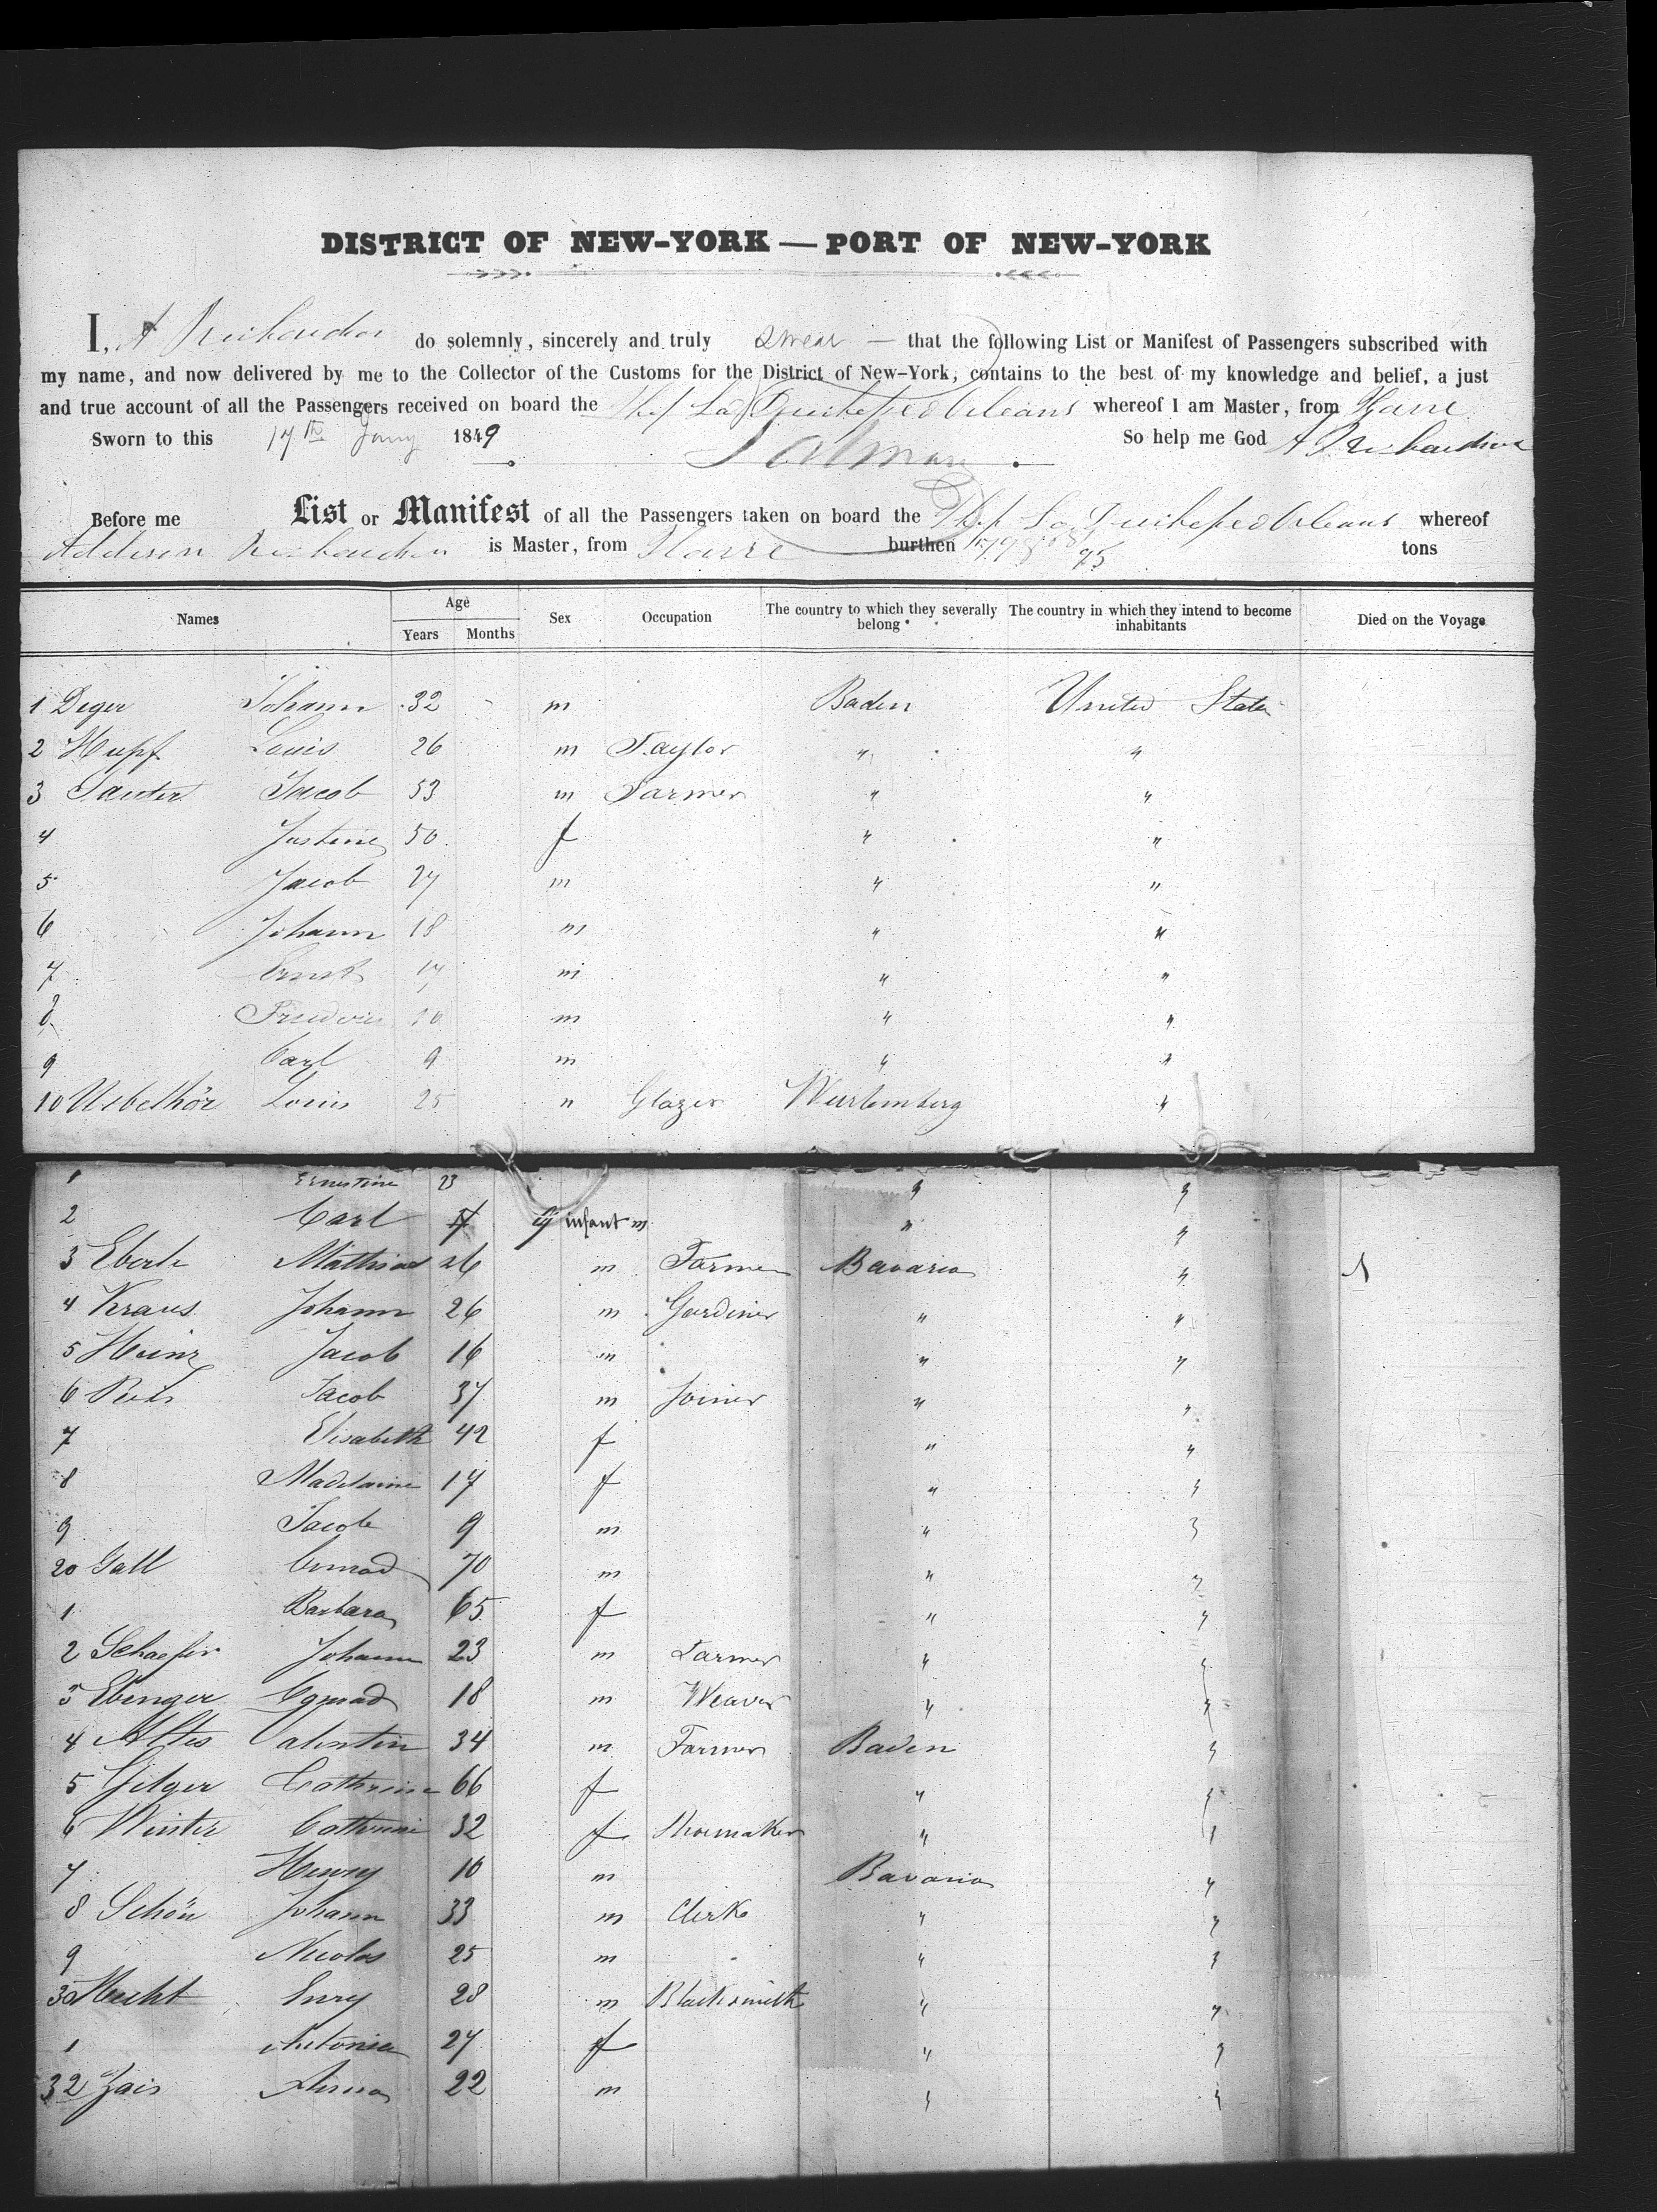 DISTRICT OF NEW-YORK — PORT OF NEW-YORK
I, A Richardson do solemnly, sincerely and truly swear — that the following List or Manifest of Passengers subscribed with
my name, and now delivered by me to the Collector of the Customs for the District of New-York, contains to the best of my knowledge and belief, a just
and true account of all the Passengers received on board the Ship La Duchesse d'Orleans whereof I am Master, from Havre
Sworn to this 17th Jany 1849 So help me God A Richardson
Before me List or Manifest of all the Passengers taken on board the Ship La Duchesse d'Orleans whereof
Addison Richardson is Master, from Havre burthen 798 /95 tons
Names Age Sex Occupation The country to which they severally belong The country in which they intend to become inhabitants Died on the Voyage
Years Months
1 Deger Johann 32 m Baden United States
2 Hupf Louis 26 m Taylor " "
3 Sauter Jacob 53 m Farmer " "
4 Justine 50 f " "
5 Jacob 27 m " "
6 Johann 18 m " "
7 Ernst 17 m " "
8 m " "
9 Carl 9 m " "
10 Uebelhör Louis 25 " Glazer Wurtemberg "
1 Ernestine 23 " "
2 Carl infant m " "
3 Eberle Mathias 26 m Farmer Bavaria "
4 Kraus Johann 26 m Gardiner " "
5 Heinz Jacob 16 m " "
6 Jacob 37 m Joiner " "
7 Elisabeth 42 f " "
8 Madelaine 17 f " "
9 Jacob 9 m " "
20 Gall Conrad 70 m " "
1 Barbara 65 f " "
2 Schaefer Johann 23 m Farmer " "
3 Ebinger Conrad 18 m Weaver " "
4 Altes Valentin 34 m Farmer Baden "
5 Gilger Cathrine 66 f " "
6 Winter Cathrine 32 f Shoemaker " "
7 Henry 10 m Bavaria "
8 Schön Johann 33 m Clerk " "
9 Nicolas 25 m " "
30 Hecht 28 m Blacksmith " "
1 Antonia 27 f " "
32 Zais 22 m " "